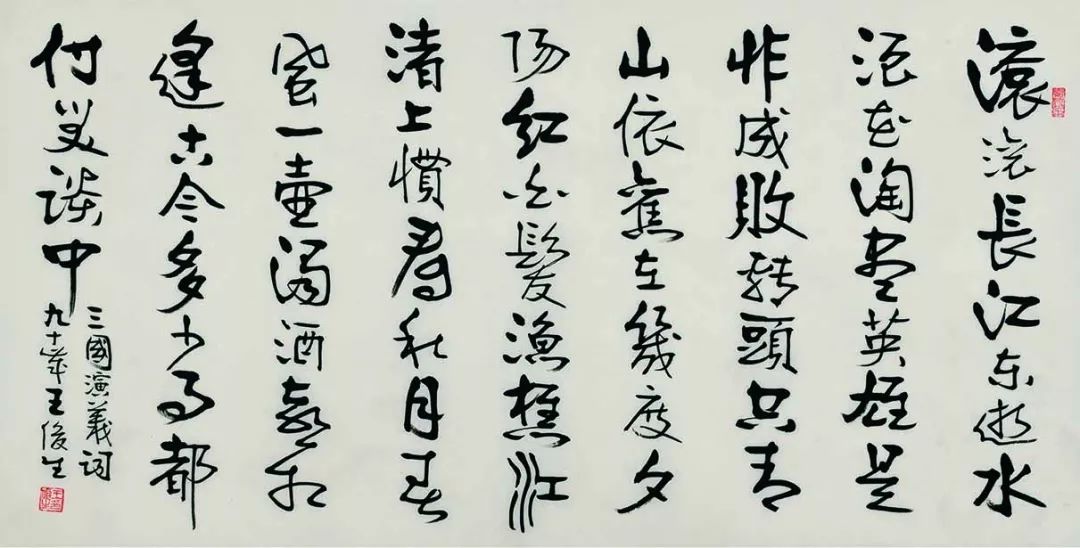 滚滚長江东逝水
浪花淘盡英雄是
非成敗转頭空青
山依舊在幾度夕
陽红白髮渔樵江
渚上慣看秋月春
風一壶濁酒喜相
逢古今多少事都
付笑談中
三國演義词
九十岁王俊生